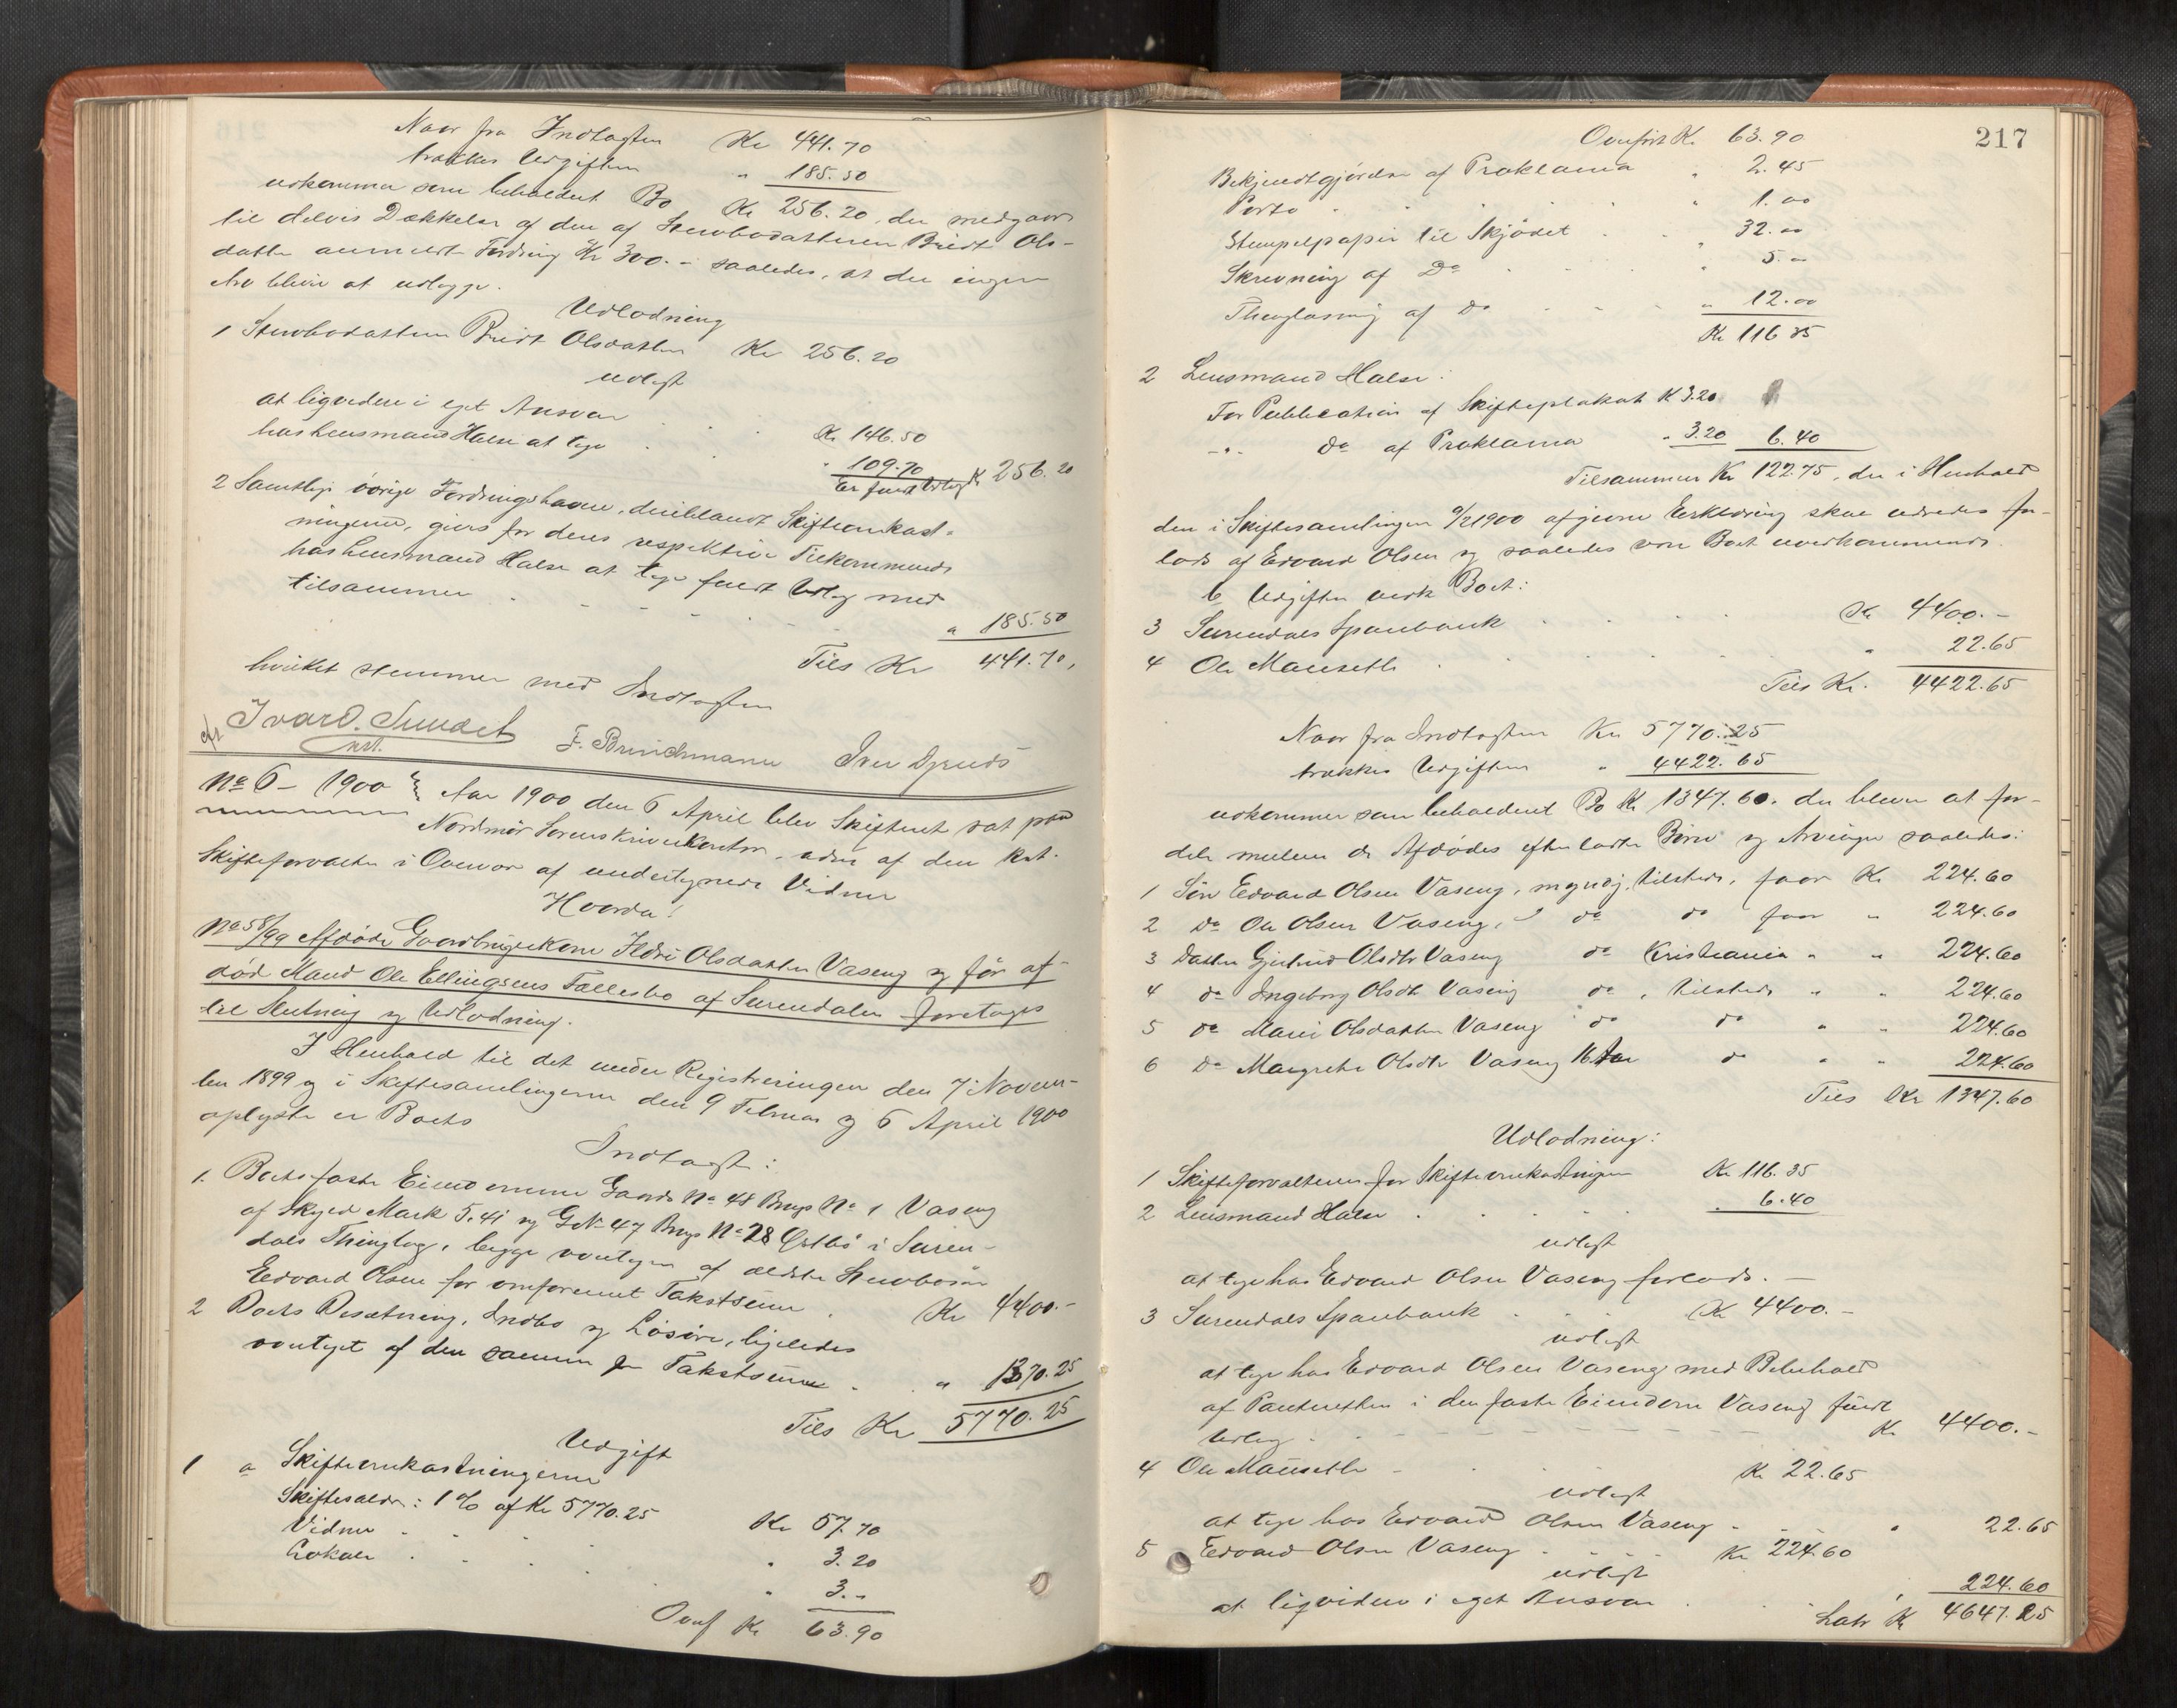 Naar fra Indtægten Kr 441.70
trækkes Udgiften " 185.50
udkommer som beholdent Bo Kr 256.20, der medgaar
til delvis Dækkelse af den af Stervbodatteren Bridt Ols-
datter anmeldte Fordring Kr 300.- saaledes, at der ingen
Arv bliver at udlægge.
Udlodning
1 Stervbodatteren Bridt Olsdatter Kr 256.20
udlagt
at ligvidere i eget Ansvar . . . Kr 146.50
hos Lensmand Halse at tage . . " 109.70
Er fuldt Udlæg Kr 256.20
2 Samtlige øvrige Fordringshavere, deriblandt Skifteomkast-
ningerne, gives for deres respektive Tilkommende
hos Lensmand Halse at tage fuldt Udlæg med
tilsammen . . . . . " 185.50
Tils Kr 441.70,
hvilket stemmer med Indtægten
Ivar O. Sundet F. Brinchmann Iver
cst.
No 6 - 1900 } Aar 1900 den 6 April blev Skifteret sat paa
Nordmør Sorenskriverkontor, adm. af den kst.
Skifteforvalter i Overvær af undertegnede Vidner
Hvorda!
No 58/99 Afdøde Gaardbrugerkone Ildri Olsdatter Vaseng og før af-
død Mand Ole Ellingsens Fællesbo af Surendalen foretages
til Slutning og Udlodning.
I Henhold til det under Registreringen den 7 Novem-
ber 1899 og i Skiftesamlingerne den 9 Februar og 6 April 1900
oplyste er Boets
Indtægt:
1. Boets faste Eiendomme Gaards No 48 Brugs No 1 Vaseng
af Skyld Mark 5.41 og GNo 47 Brugs No 28 i Suren-
dals Thinglag, begge overtagen af ældste Stervbosøn
Edvard Olsen for omforenet Takstsum . Kr 4400.-
2 Boets Besætning, Indbo og Løsøre, ligeledes
overtaget af den samme for Takstsum . . " 1370.25
Tils Kr 5770.25
Udgift
1 a Skifteomkastningerne
Skiftesalær: 1 % af Kr 5770.25 Kr 57.70
Vidner . . . " 3.20
Lokale . . . " 3.-
Overf Kr 63.90
217
Overført Kr 63.90
Bekjendtgjørelse af Proklama " 2.45
Porto . . . . " 1.00
Stempelpapir til Skjødet . . 32.00
Skrivning af Do . . . " 5.-
Thinglæsning af Do . . . " 12.00
Kr 116 35
2 Lensmand Halse:
For Publication af Skifteplakat K 3.20
-"- Do af Proklama " 3.20 6.40
Tilsammen Kr 122.75, der i Henhold
den i Skiftesamlingen 9/2 1900 afgivne Erklæring skal udredes for-
lods af Edvard Olsen og saaledes være Boet uvedkommende
b Udgifter vedk Boet:
3 Surendals Sparebank . . . . Kr 4400.-
4 Ole Mauseth . . . . " 22.65
Tils Kr. 4422.65
Naar fra Indtægten Kr 5770.25
trækkes Udgiften " 4422.65
udkommer som beholdent Bo Kr 1347.60. der bliver at for-
dele mellem de Afdødes efterladte Børn og Arvinger saaledes:
1 Søn Edvard Olsen Vaseng, myndig, tilstede, faar Kr 224.60
2 Do Ole Olsen Vaseng, do do faar " 224.60
3 Datter Gjertrud Olsdtr Vaseng do Kristiania " " 224.60
4 do Ingeborg Olsdtr Vaseng do, tilstede " " 224.60
5 do Marie Olsdatter Vaseng do do " " 224.60
6 Do Margrethe Olsdtr Vaseng 16 Aar do " " 224.60
Tils Kr 1347.60
Udlodning:
1 Skifteforvalteren for Skifteomkastninger Kr 116.35
2 Lensmand Halse . . . . " 6.40
udlagt
at tage hos Edvard Olsen Vaseng forlods. -
3 Surendals Sparebank . . . Kr 4400.-
udlagt
at tage hos Edvard Olsen Vaseng med Beholdt
af Panteretten i den faste Eiendom Vaseng fuldt
Udlæg . - - - - - - - Kr 4400.-
4 Ole Mauseth - . . . Kr 22.65
udlagt
at tage hos Edvard Olsen Vaseng - . - " 22.65
5 Edvard Olsen Vaseng . . . Kr 224.60
udlagt
at ligvidere i eget Ansvar . . . " 224.60
Latr Kr 4647.25